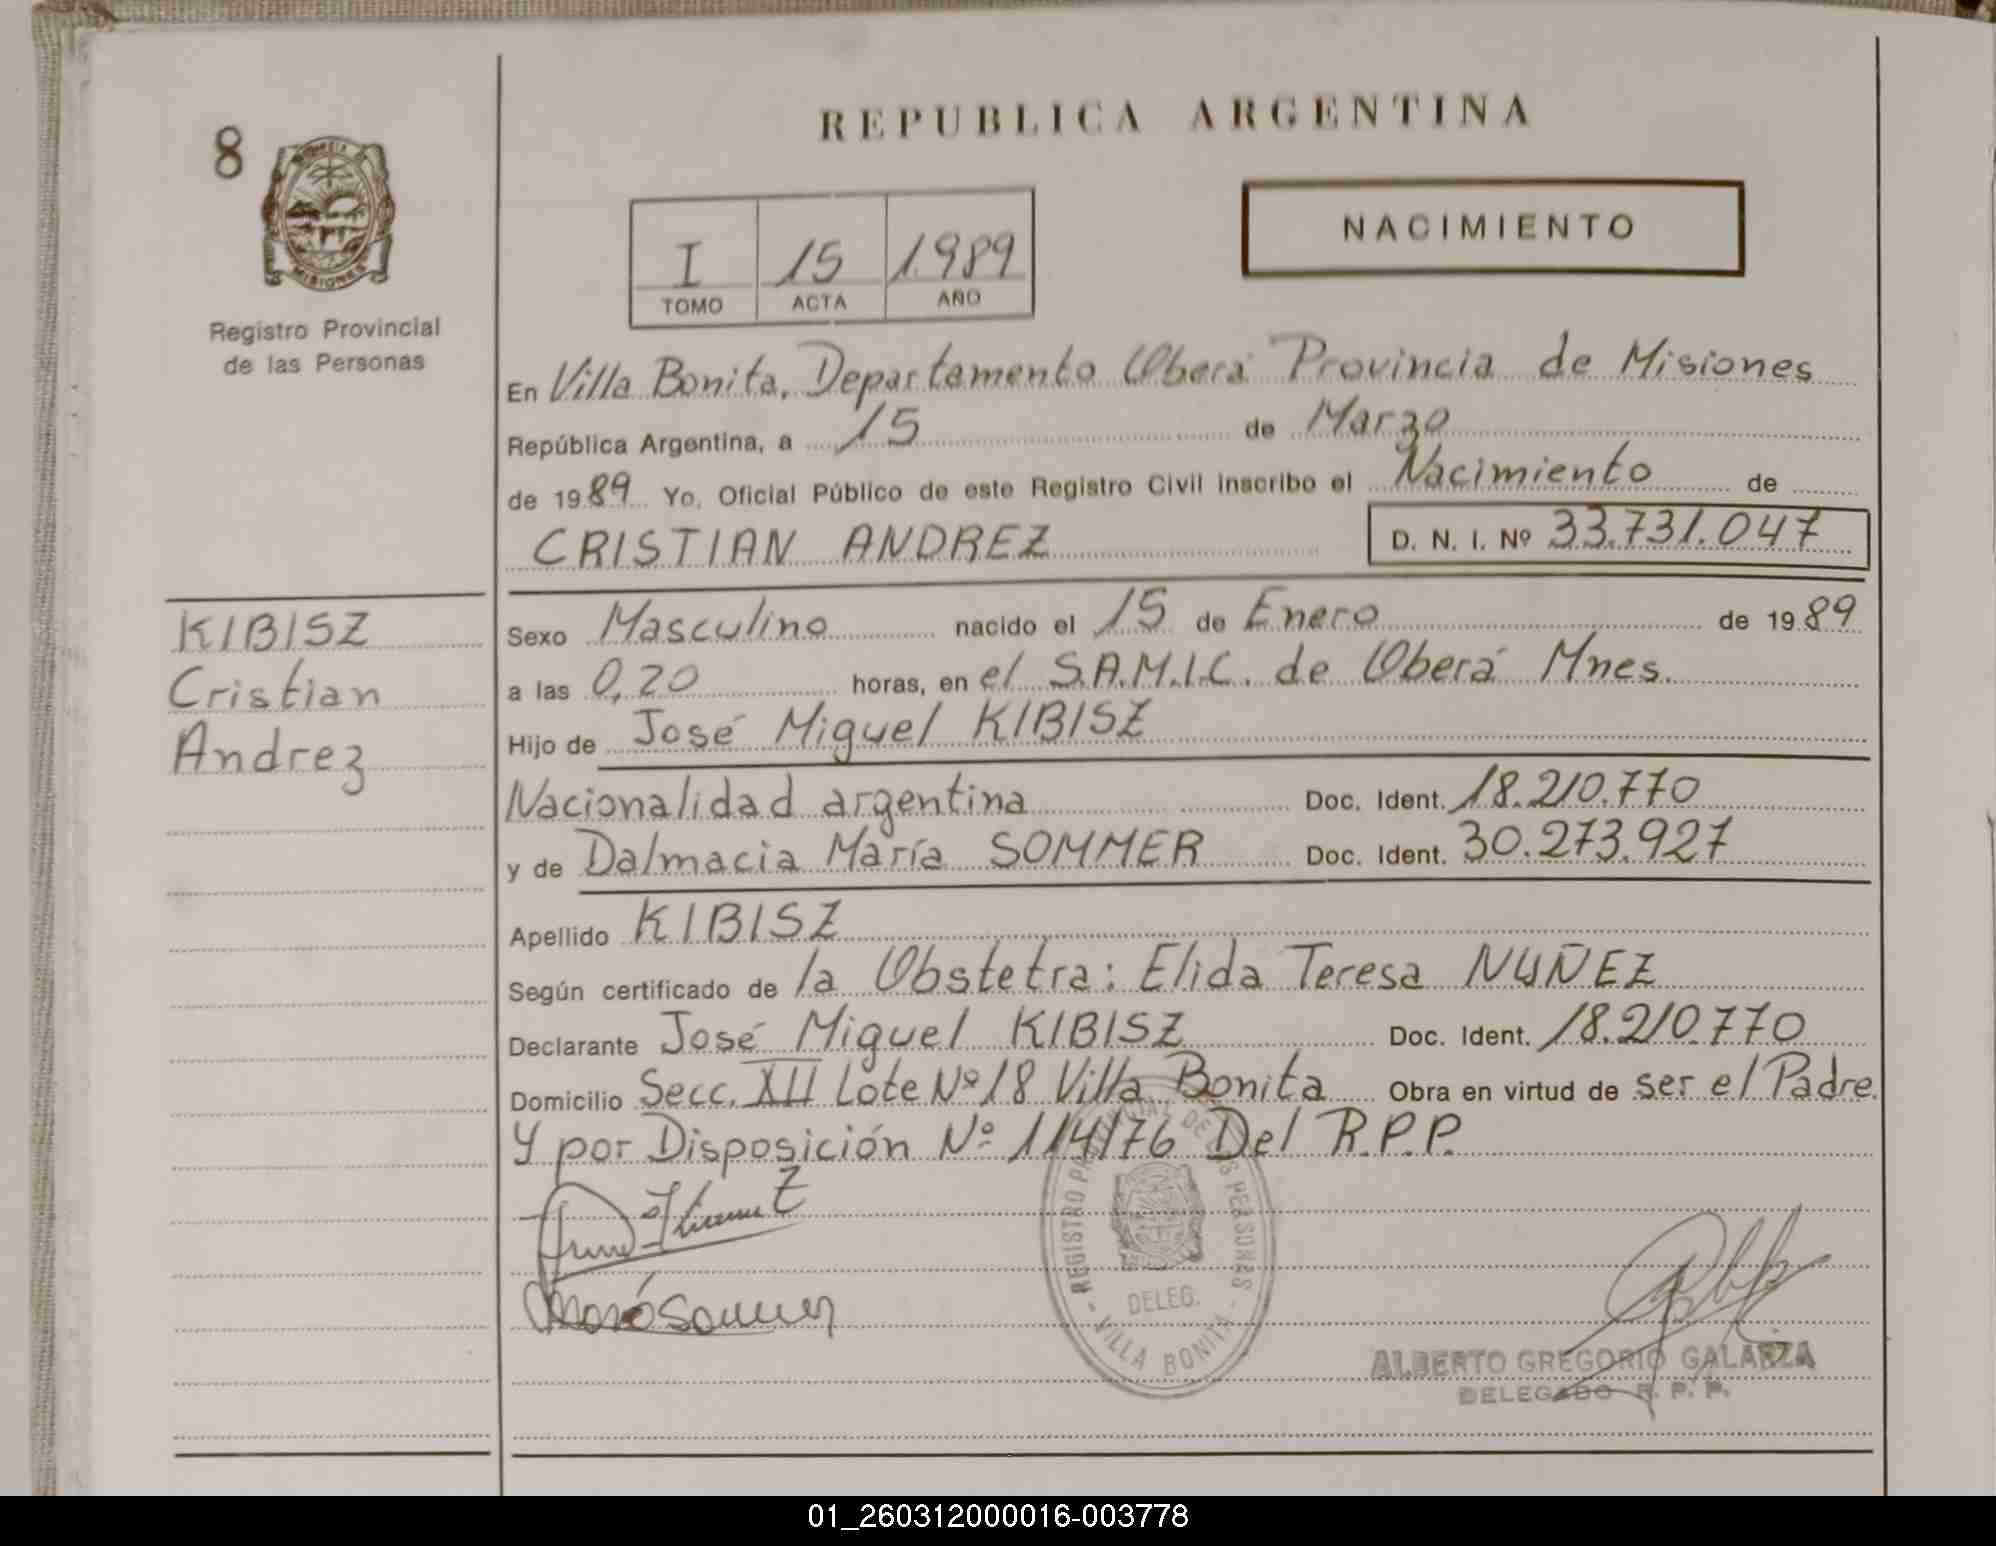 8
PROVINCIA
MISIONES
Registro Provincial
de las Personas
REPUBLICA ARGENTINA
I 15 1989
TOMO ACTA AÑO
NACIMIENTO
En Villa Bonita, Departamento Oberá Provincia de Misiones
República Argentina, a 15 de Marzo
de 1989 Yo, Oficial Público de este Registro Civil inscribo el Nacimiento de
CRISTIAN ANDREZ D. N. I. Nº 33.731.047
KIBISZ
Cristian
Andrez
Sexo Masculino nacido el 15 de Enero de 1989
a las 0,20 horas, en el S.A.M.I.C. de Oberá Mnes.
Hijo de José Miguel KIBISZ
Nacionalidad argentina Doc. Ident. 18.210.770
y de Dalmacia María SOMMER Doc. Ident. 30.273.927
Apellido KIBISZ
Según certificado de la Obstetra: Elida Teresa NUÑEZ
Declarante José Miguel KIBISZ Doc. Ident. 18.210.770
Domicilio Secc. XII Lote Nº 18 Villa Bonita Obra en virtud de ser el Padre.
Y por Disposición Nº 114/76 Del R.P.P.
REGISTRO PROVINCIAL DE LAS PERSONAS
DELEG.
- VILLA BONITA -
ALBERTO GREGORIO GALARZA
DELEGADO R. P. P.
01_260312000016-003778